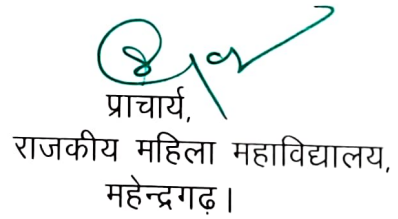 प्राचार्य,
राजकीय महिला महाविद्यालय,
महेन्द्रगढ़।